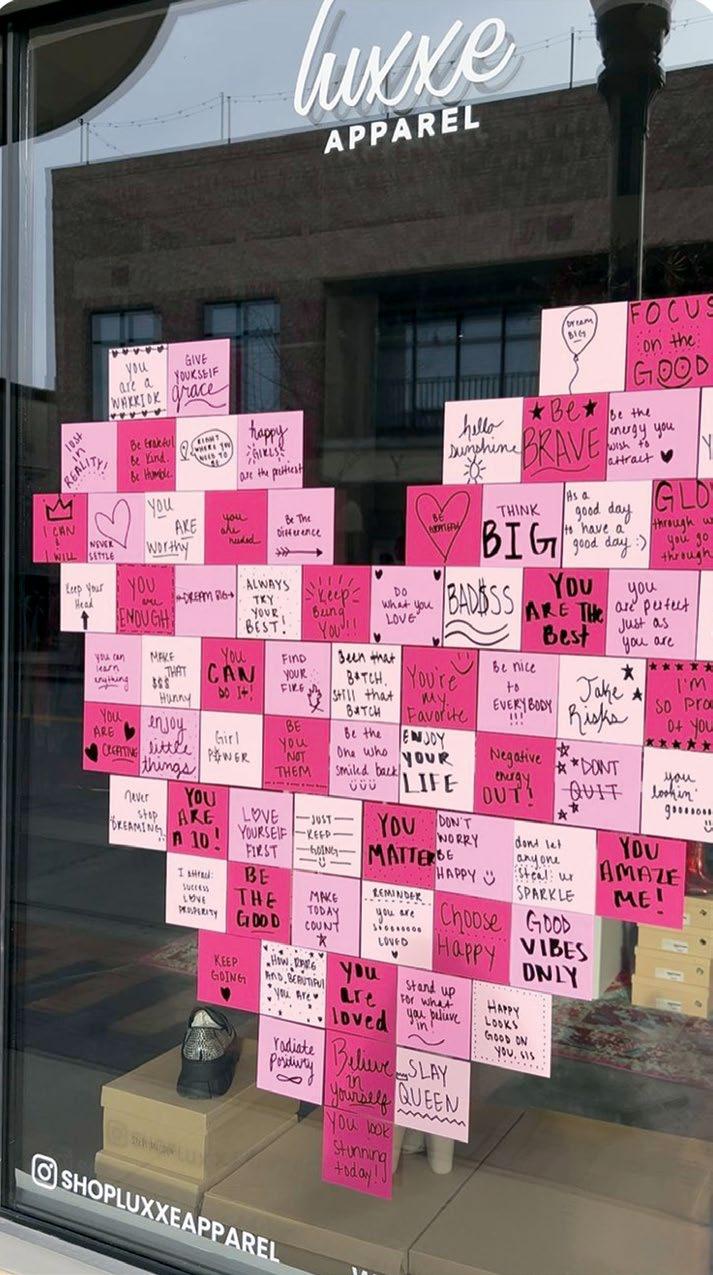 luxxe
APPAREL
Dream
BIG
FOCUS
on the
GOOD
you
are a
WARRIOR
GIVE
YOURSELF
grace
hello
sunshine
Be
BRAVE
Be the
energy you
wish to
attract
lost
in
REALITY!
Be Grateful
Be Kind.
Be Humble.
RIGHT
WHERE YOU
NEED TO
BE
happy
GIRLS
are the prettiest
I CAN
&
I WILL
NEVER
SETTLE
YOU
ARE
worthy
you
are
needed.
Be The
Difference
BE
GRATEFUL
THINK
BIG
It's a
good day
to have a
good day :)
GLO
through w
you go
through
Keep your
Head
YOU
are
ENOUGH
DREAM BIG
ALWAYS
TRY
YOUR
BEST!
Keep
Being
You!!
DO
what you
LOVE
BAD$SS
YOU
ARE THE
Best
you
are perfect
just as
you are
you can
learn
anything
MAKE
THAT
$$$
Hunny
YOU
CAN
DO IT!
FIND
YOUR
FIRE
Been that
B*TCH,
Still that
B*TCH
You're
my
Favorite
Be nice
to
EVERYBODY
!!!
Take
Risks
I'M
SO PRO
OF YO
YOU
ARE
CREATING
enjoy
little
things
Girl
POWER
BE
YOU
NOT
THEM
Be the
one who
smiled back
ENJOY
YOUR
LIFE
Negative
energy
OUT!
DON'T
QUIT
you
lookin'
goooooo
never
stop
DREAMING
YOU
ARE
A 10!
LOVE
YOURSELF
FIRST
JUST
KEEP
GOING
YOU
MATTER
DON'T
WORRY
BE
HAPPY
dont let
anyone
steal ur
SPARKLE
YOU
AMAZE
ME!
I attract:
success
LOVE
PROSPERITY
BE
THE
GOOD
MAKE
TODAY
COUNT
REMINDER
you are
soooooooo
LOVED
Choose
Happy
GOOD
VIBES
ONLY
KEEP
GOING
HOW RARE
AND BEAUTIFUL
YOU ARE
you
are
loved
Stand up
FOR what
you believe
in!
HAPPY
LOOKS
GOOD ON
YOU, SIS
radiate
positivity
Believe
in
yourself
SLAY
QUEEN
You look
stunning
today!!
SHOPLUXXEAPPAREL